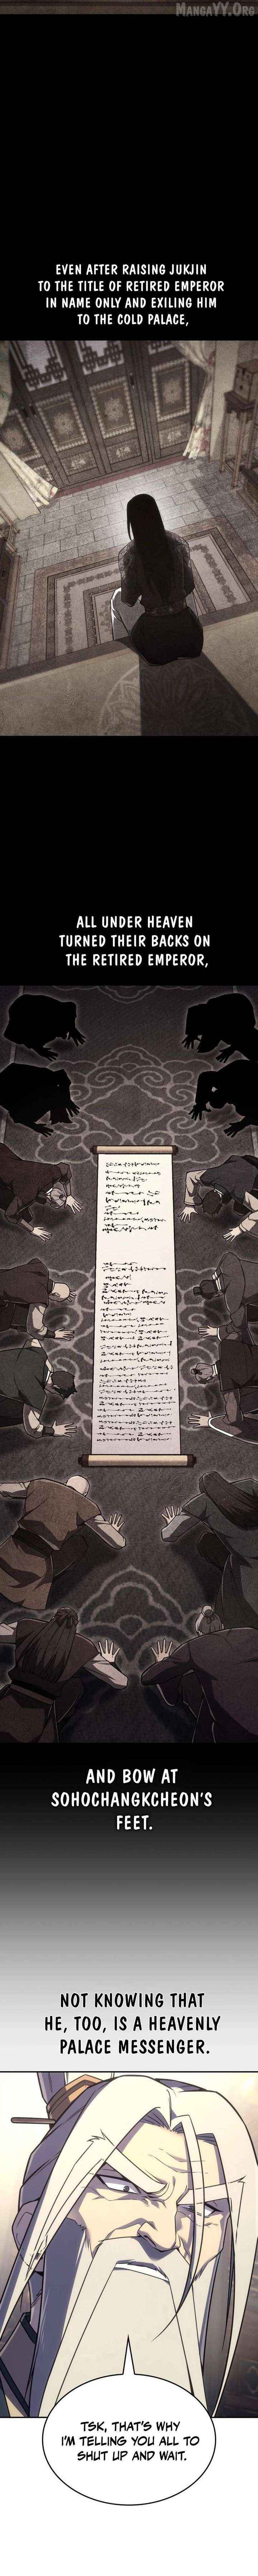 MANGAYY.ORG
EVEN AFTER RAISING JUKJIN
TO THE TITLE OF RETIRED EMPEROR
IN NAME ONLY AND EXILING HIM
TO THE COLD PALACE,
ALL UNDER HEAVEN
TURNED THEIR BACKS ON
THE RETIRED EMPEROR,
AND BOW AT
SOHOCHANGKCHEON'S
FEET.
NOT KNOWING THAT
HE, TOO, IS A HEAVENLY
PALACE MESSENGER.
TSK, THAT'S WHY
I'M TELLING YOU ALL TO
SHUT UP AND WAIT.